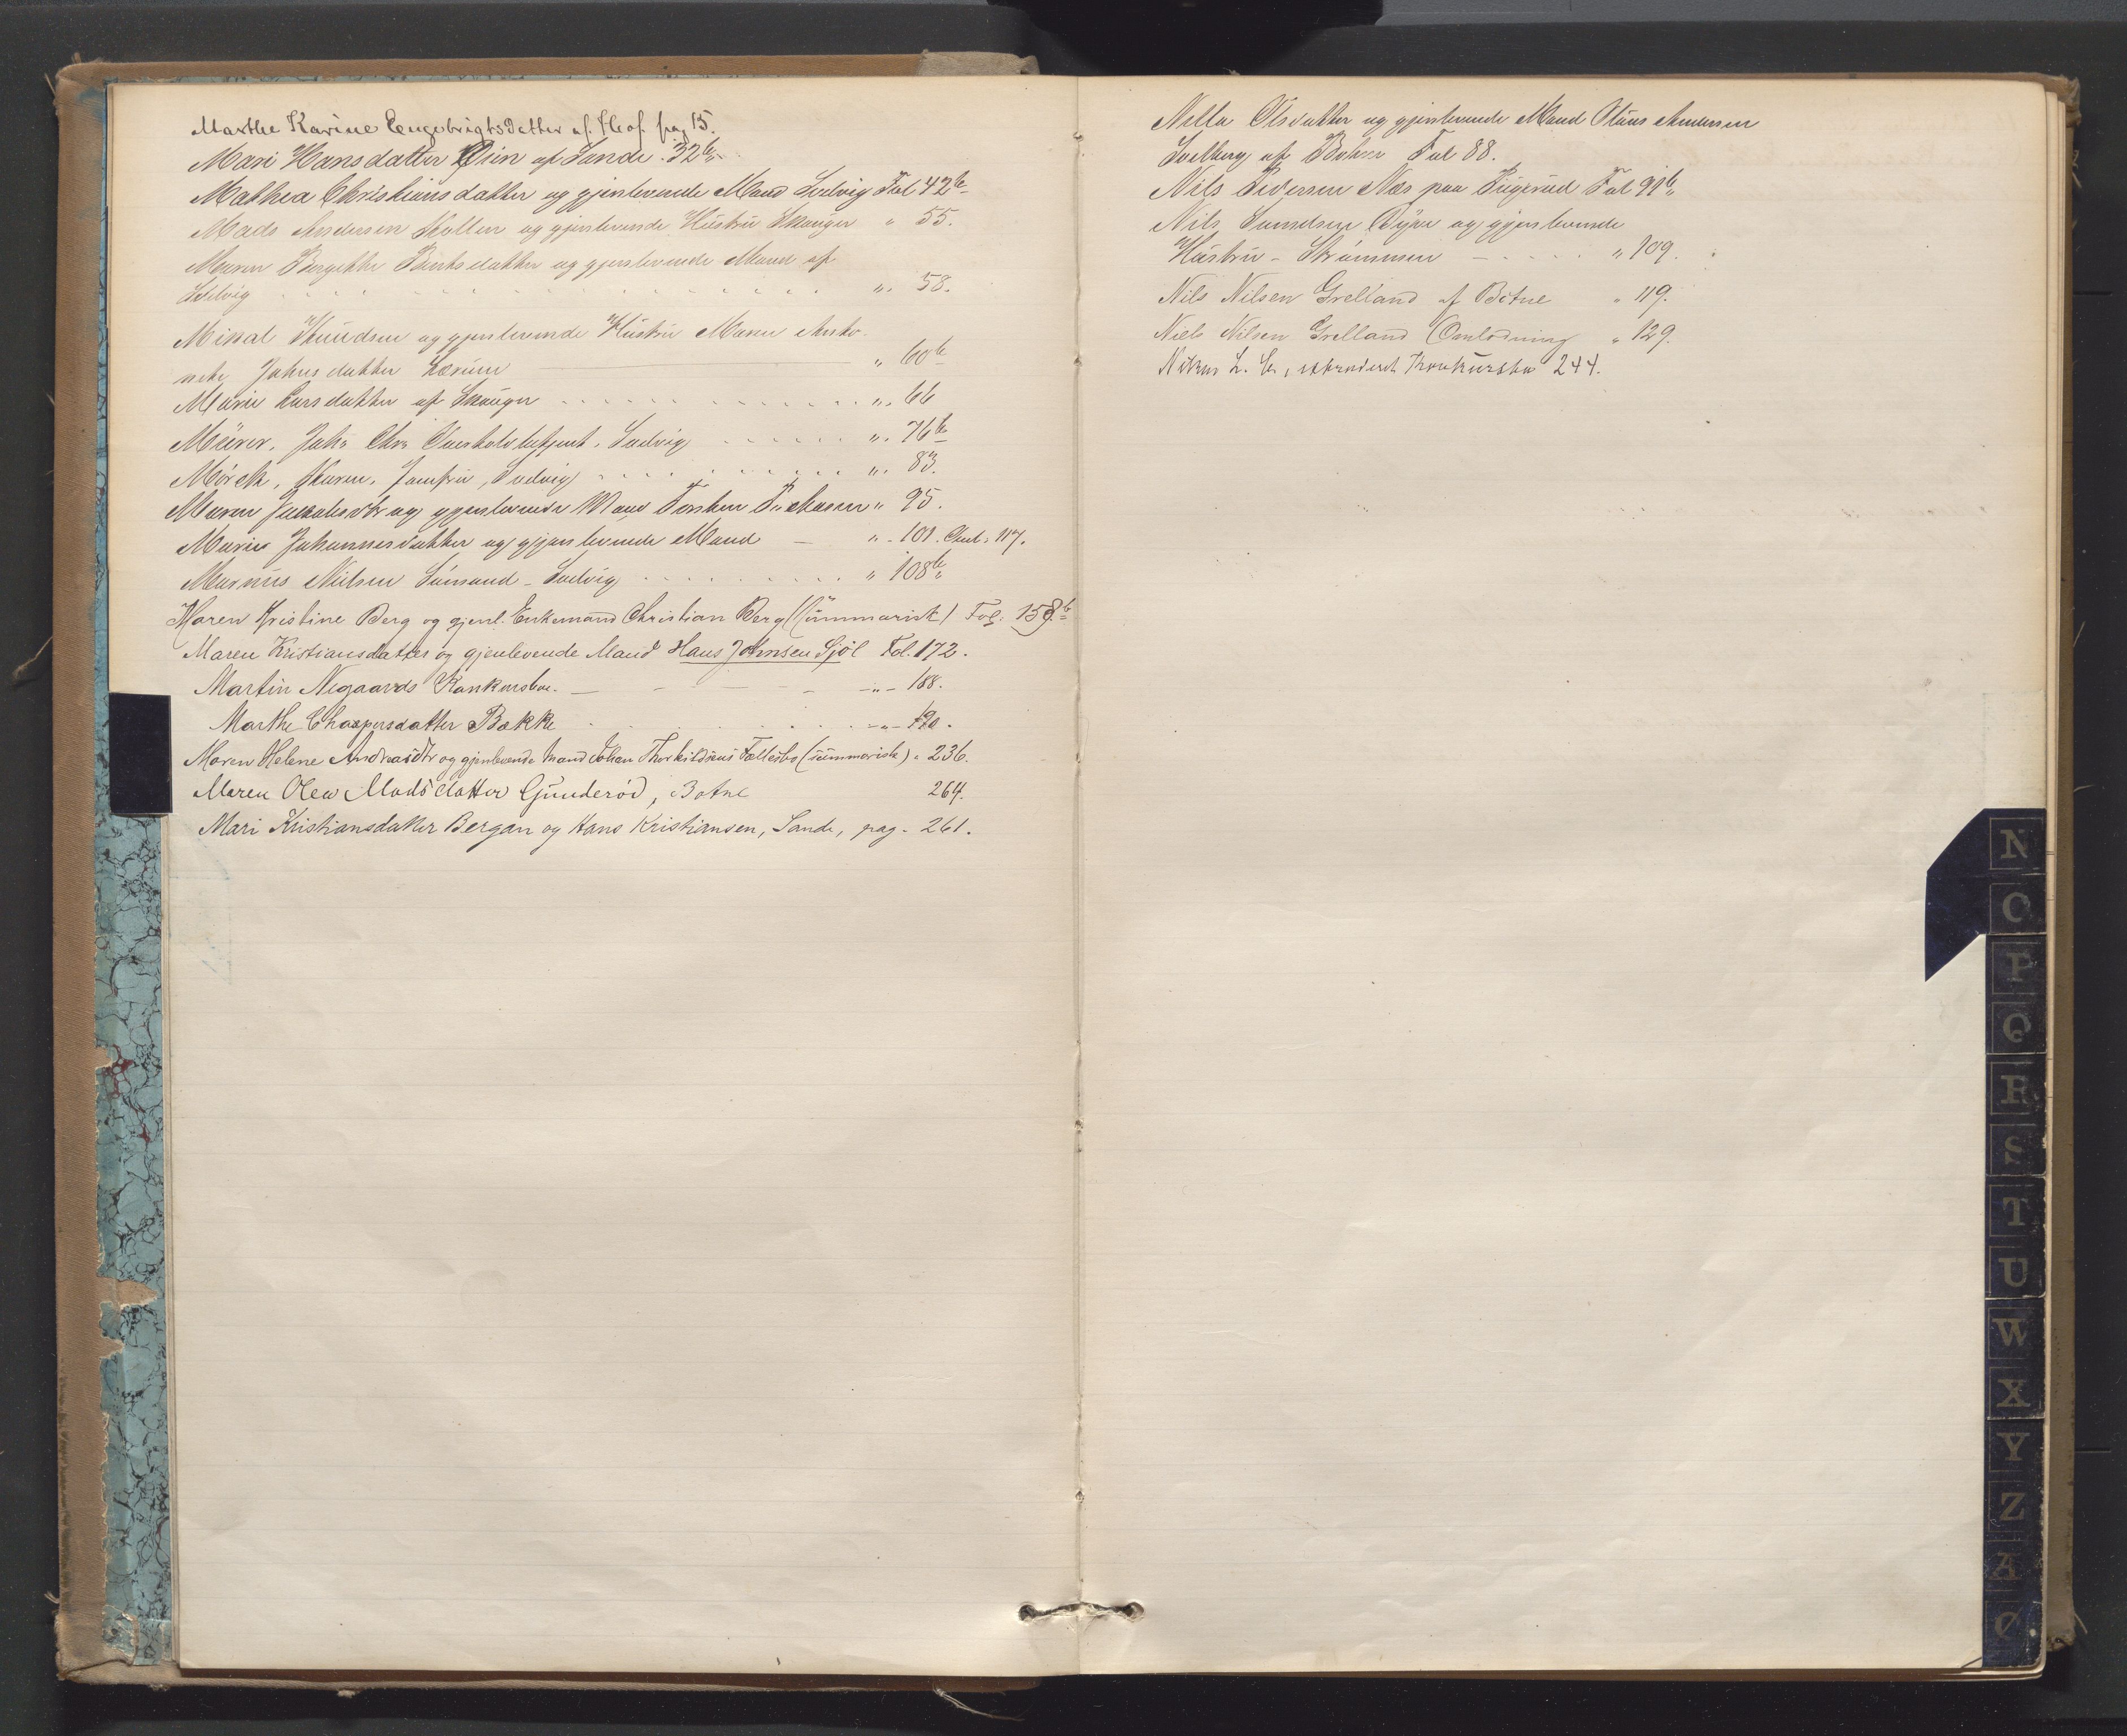 Marthe Karine Engebrigtsdatter af Hof pag 15.
Mari Hansdatter Øien af Sande. 32b
Mathea Christiansdatter og gjenlevende Mand Svelvig Fol 42b
Mads Andersen Kollen og gjenlevende Hüstrü Skouger " 55.
Maren Birgitte Berntsdatter og gjenlevende Mand af
Svelvig . . . . . ". 58.
Mikal Knüdsen og gjenlevende Hüstrü Maren Anto-
nete Johnsdatter " 60b
Marie Larsdatter af Skouger . . . . . ". 66
Mürer, Joh: Chr. Svelvig . . . . . ". 76b
Mörch, Karen, Jomfrü, Svelvig . . . . . ". 83.
Maren Jacobsdtr og gjenlevende Mand Torsten " 95.
Maria Johannesdatter og gjenlevende Mand — " - 101. 117.
Magnus Nielsen - Svelvig . . . . . " 108b
Maren Kristine Berg og gjenl. Enkemand Christian Berg (Sümmarisk) Fol. 158b
Maren Kristiansdatter og gjenlevende Mand Hans Johnsen Sjöl Fol. 172.
Martin Nygaards Konkursbo. — - — - - " - 188.
Marthe Chaspersdatter Bakke . . . - " - 190.
Maren Helene Andreasdtr og gjenlevende Mand Johan Thorkildsens Fællesbo (sümmarisk) " 236.
Maren Olea Madsdatter Günderöd, Botne 264.
Mari Kristiansdatter Bergan og Hans Kristiansen, Sande, pag. 261.
Nella Olsdatter og gjenlevende Mand Olaüs Andersen
Solberg af Botne Fol 88.
Nils Pedersen Næs paa Fol 91b
Nils og gjenlevende
Hüstrü - Strömmen - . . . . " 109.
Nils Nilsen Grelland af Botne " 119.
Niels Nilsen Grelland (Omlodning " 129.
L. Konkürsbo 244.
N
O
P
Q
R
S
T
U
W
X
Y
Z
Æ
Ø